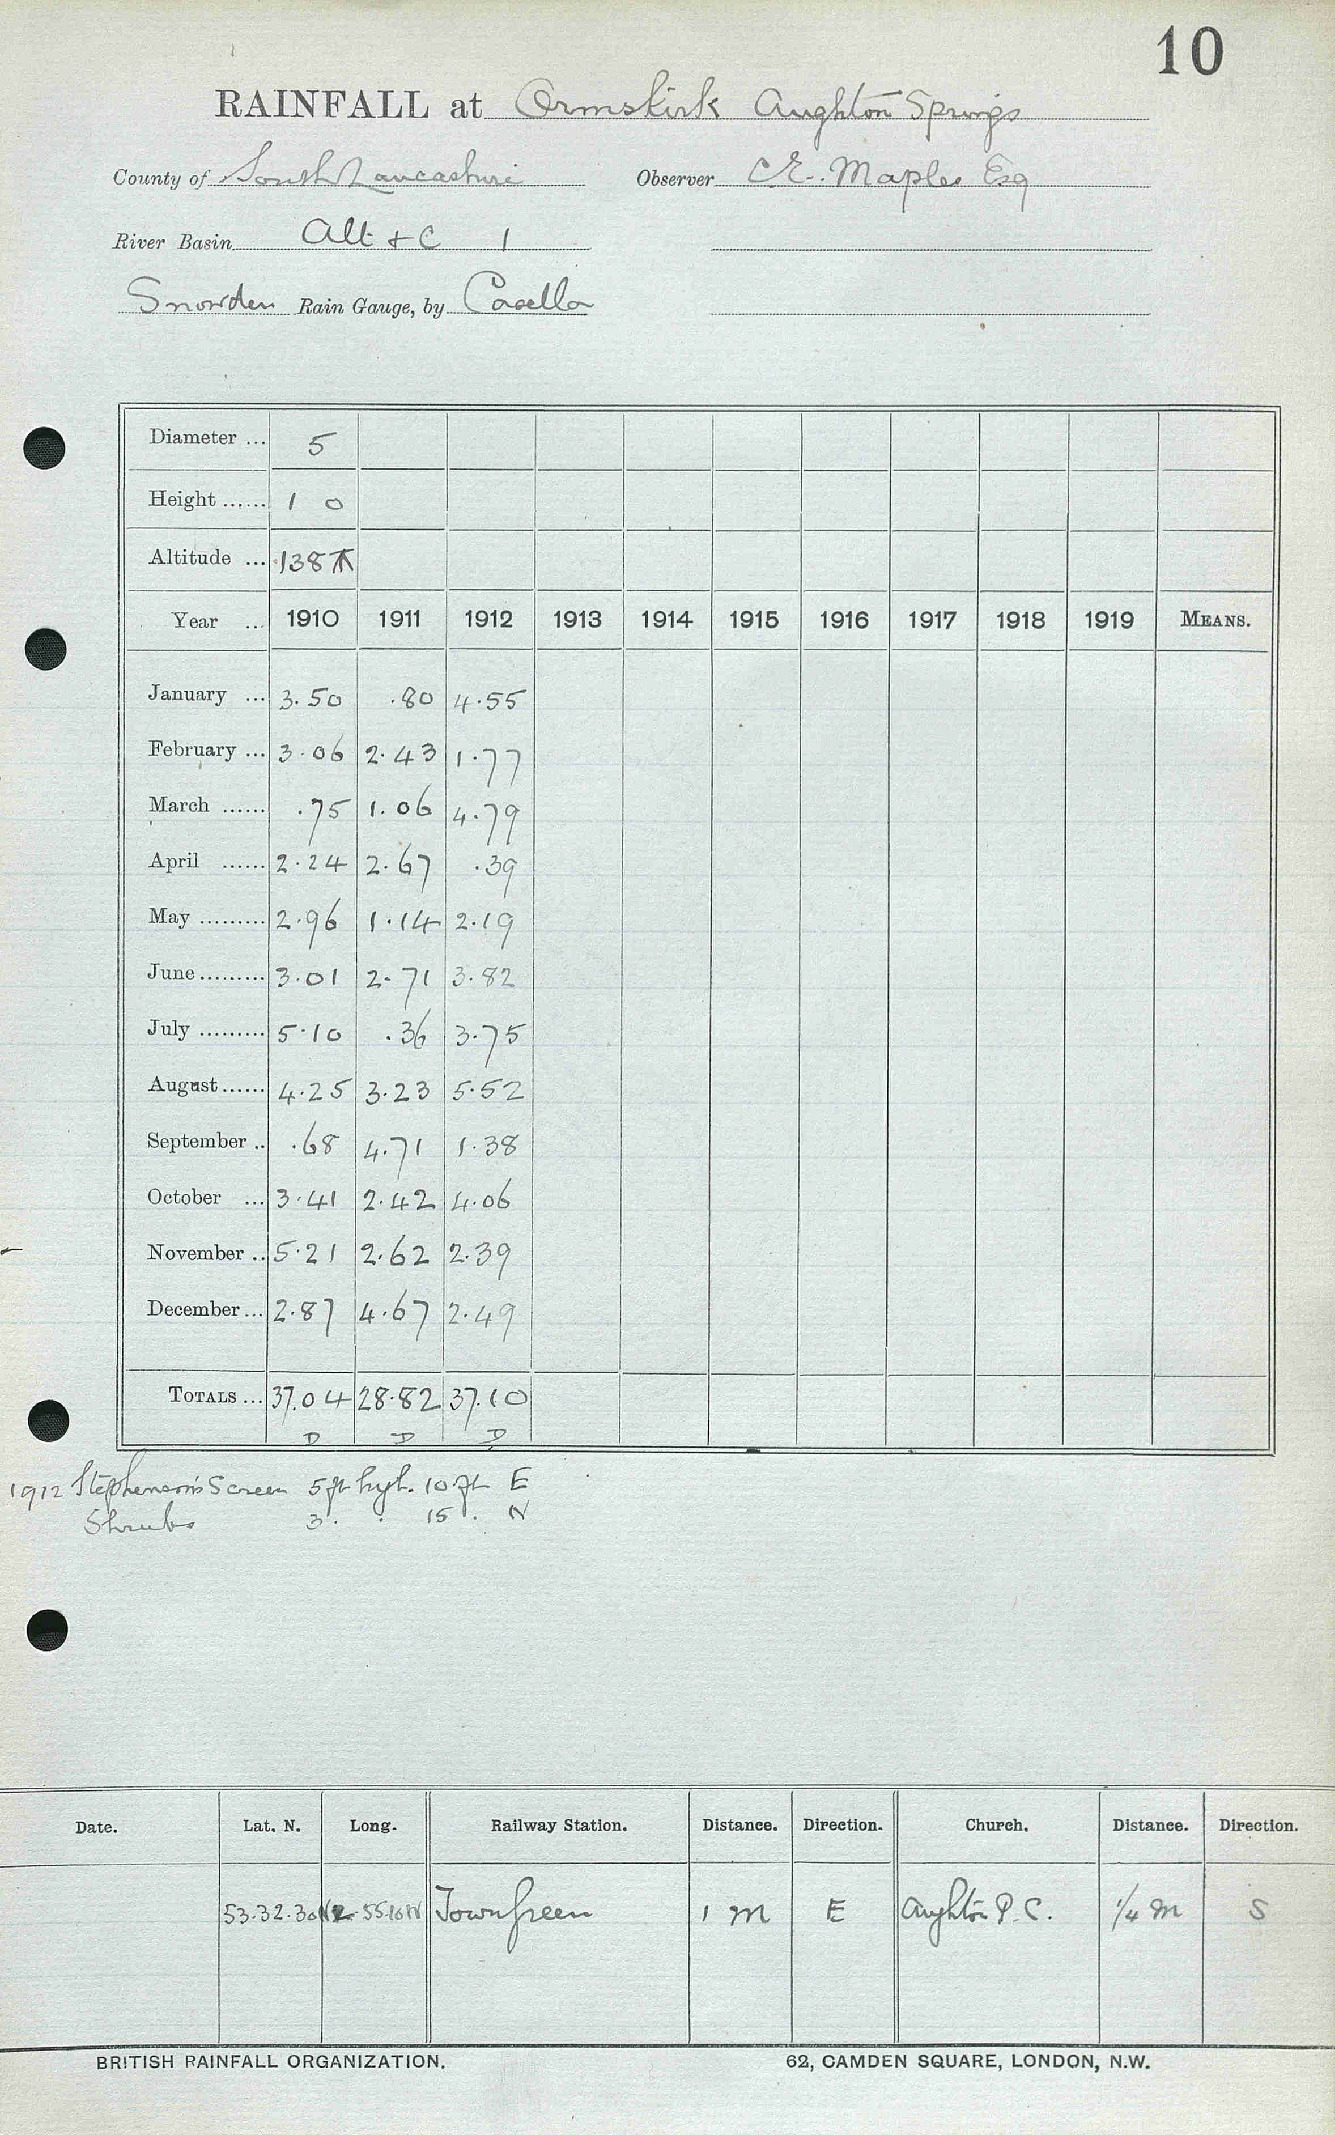 10
RAINFALL at Ormskirk Aughton Springs
County of South Lancashire Observer C E. Maples Esq
River Basin Alt & C 1
Snowden Rain Gauge, by Casella
Diameter ... 5
Height ...... 1 0
Altitude ... 138
Year ... 1910 1911 1912 1913 1914 1915 1916 1917 1918 1919 MEANS.
January ... 3.50 .80 4.55
February ... 3.06 2.43 1.77
March ...... .75 1.06 4.79
April ...... 2.24 2.67 .39
May ......... 2.96 1.14 2.19
June ......... 3.01 2.71 3.82
July ......... 5.10 .36 3.75
August ...... 4.25 3.23 5.52
September .. .68 4.71 1.38
October ... 3.41 2.42 4.06
November .. 5.21 2.62 2.39
December ... 2.87 4.67 2.49
TOTALS ... 37.04 28.82 37.10
D D D
1912 Stephenson's Screen 5 ft hgh. 10 ft E
Shrubs 3 . . 15 . N
Date. Lat. N. Long. Railway Station. Distance. Direction. Church. Distance. Direction.
53.32.30N 2.55.10W Town Green 1 M E Aughton P. C. 1/4 M S
BRITISH RAINFALL ORGANIZATION. 62, CAMDEN SQUARE, LONDON, N.W.